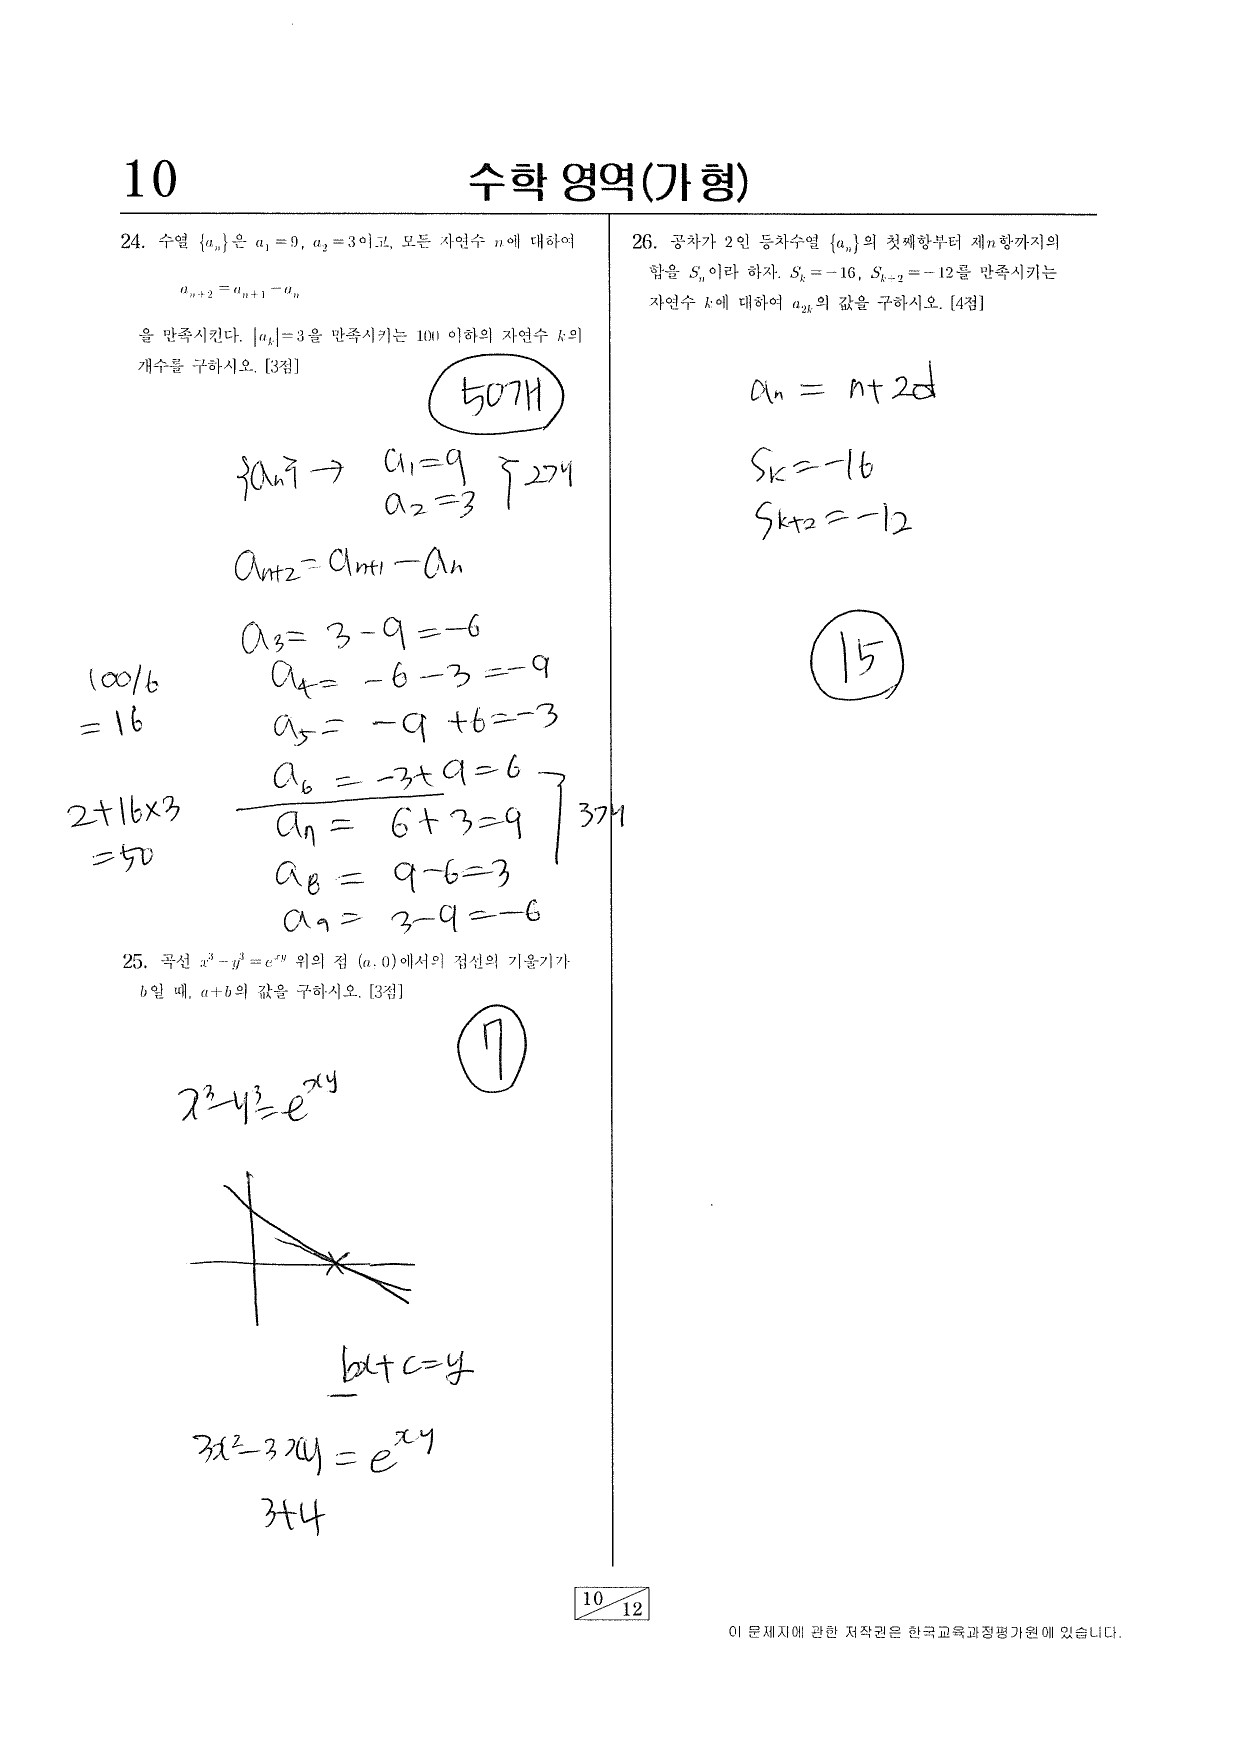 10
수학 영역(가형)
24. 수열 {aₙ}은 a₁=9, a₂=3이고, 모든 자연수 n에 대하여
aₙ₊₂=aₙ₊₁-aₙ
을 만족시킨다. |aₖ|=3을 만족시키는 100 이하의 자연수 k의
개수를 구하시오. [3점]
50개
{aₙ} → a₁=9
a₂=3
} 2개
aₙ₊₂=aₙ₊₁-aₙ
a₃= 3-9=-6
a₄= -6-3=-9
a₅= -9+6=-3
a₆= -3+9=6
a₇= 6+3=9
a₈= 9-6=3
a₉= 3-9=-6
3개
100/6
=16
2+16×3
=50
25. 곡선 x³-y³=eˣʸ 위의 점 (a, 0)에서의 접선의 기울기가
b일 때, a+b의 값을 구하시오. [3점]
7
x³-y³=eˣʸ
bx+c=y
3x²-3xy=eˣʸ
3+4
26. 공차가 2인 등차수열 {aₙ}의 첫째항부터 제n항까지의
합을 Sₙ이라 하자. Sₖ=-16, Sₖ₊₂=-12를 만족시키는
자연수 k에 대하여 a₂ₖ의 값을 구하시오. [4점]
aₙ = n+2d
Sₖ=-16
Sₖ₊₂=-12
15
10/12
이 문제지에 관한 저작권은 한국교육과정평가원에 있습니다.